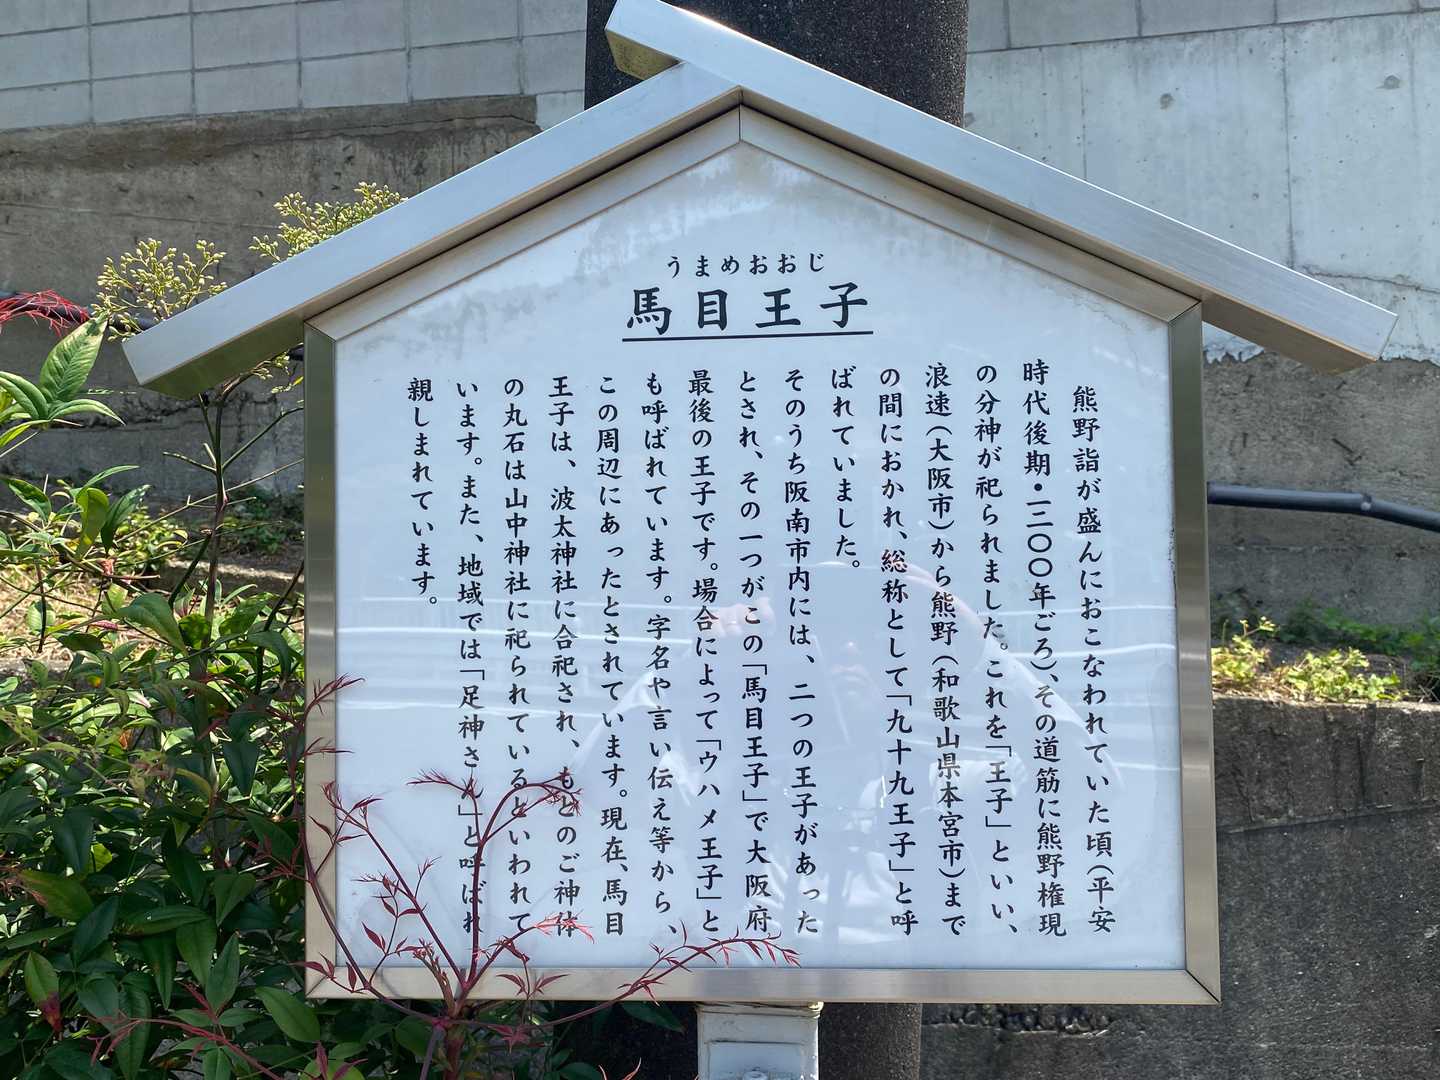 うまめおおじ
馬目王子
熊野詣が盛んにおこなわれていた頃（平安
時代後期・一二〇〇年ごろ）、その道筋に熊野権現
の分神が祀られました。これを「王子」といい、
浪速（大阪市）から熊野（和歌山県本宮市）まで
の間におかれ、総称として「九十九王子」と呼
ばれていました。
そのうち阪南市内には、二つの王子があった
とされ、その一つがこの「馬目王子」で大阪府
最後の王子です。場合によって「ウハメ王子」と
も呼ばれています。字名や言い伝え等から、
この周辺にあったとされています。現在、馬目
王子は、波太神社に合祀され、もとのご神体
の丸石は山中神社に祀られているといわれて
います。また、地域では「足神さん」と呼ばれ
親しまれています。